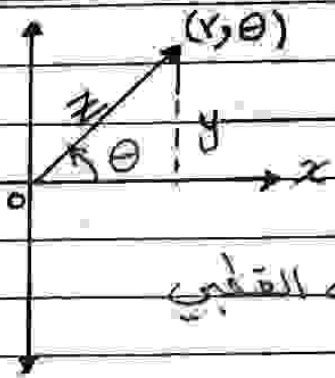 (r, θ)
z
y
θ
x
o
القطبي